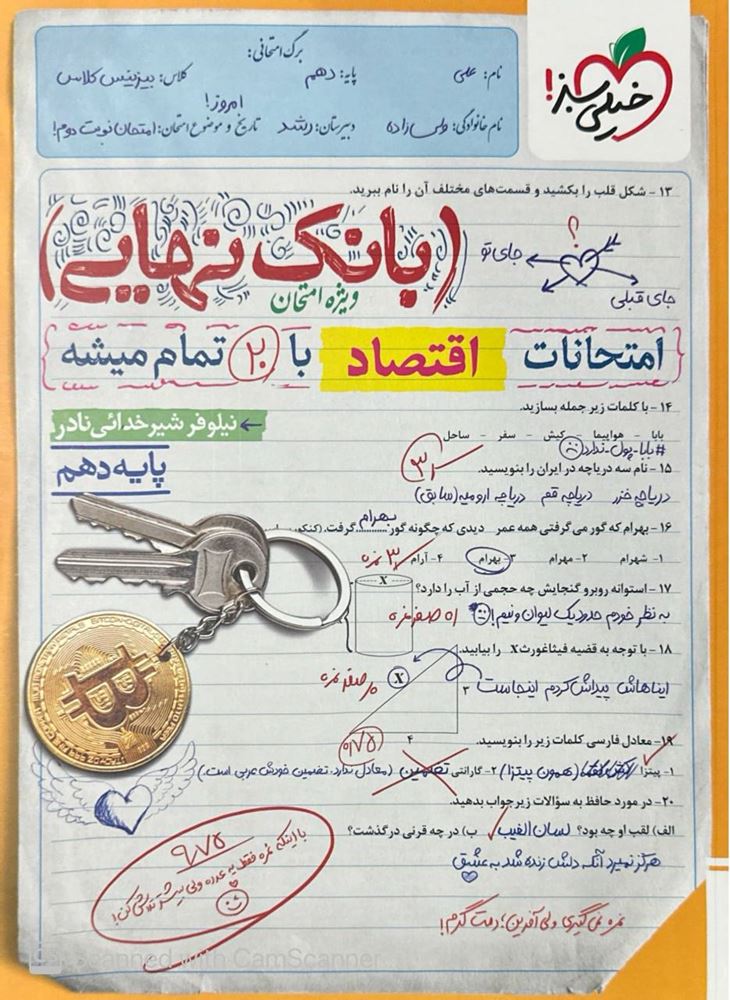 خیلی سبز!
برگ امتحانی:
نام: علی پایه: دهم کلاس: بیزینس کلاس
امروز!
نام خانوادگی: ولی زاده دبیرستان: رشد تاریخ و موضوع امتحان: امتحان نوبت دوم!
۱۳ – شکل قلب را بکشید و قسمت‌های مختلف آن را نام ببرید.
؟
جای تو
جای قبلی
(بانک نهایی)
ویژه امتحان
{امتحانات اقتصاد با ۲۰ تمام میشه}
۱۴ – با کلمات زیر جمله بسازید.
نیلوفر شیرخدائی نادر
بابا – هواپیما – کیش – سفر – ساحل
#بابا-پول-ندارد
پایه دهم
۱۵ – نام سه دریاچه در ایران را بنویسید.
دریاچه خزر دریاچه قم دریاچه ارومیه (سابق)
۱۶ – بهرام که گور می‌گرفتی همه عمر دیدی که چگونه گور بهرام گرفت.
۱- شهرام ۲- مهرام ۳- بهرام ۴- آرام
۱۷ – استوانه روبرو گنجایش چه حجمی از آب را دارد؟
X
به نظر خودم حدود یک لیوان و نیم!
۱۸ – با توجه به قضیه فیثاغورث X را بیابید.
ایناهاش پیداش کردم اینجاست
X
۳
۴
۱۹ – معادل فارسی کلمات زیر را بنویسید.
۱- پیتزا (همون پیتزا) ۲- گارانتی تضمین (معادل ندارد. تضمین خودش عربی است.)
۲۰ – در مورد حافظ به سؤالات زیر جواب بدهید.
الف) لقب او چه بود؟ لسان الغیب ب) در چه قرنی درگذشت؟
هرگز نمیرد آنکه دلش زنده شد به عشق
با اینکه نمره فقط یه عدده ولی بیشتر تلاش کن!
نمره نمی‌گیری ولی آفرین؛ دمت گرم!
Scanned with CamScanner